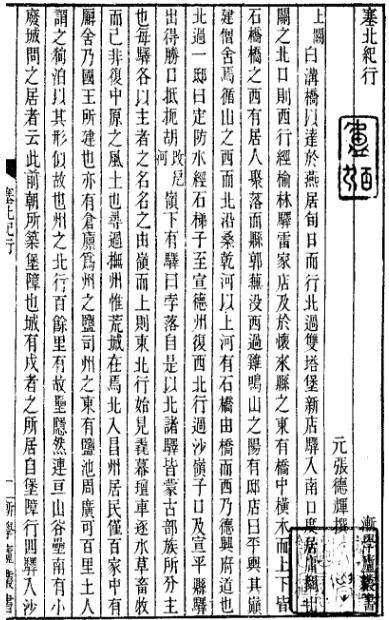 塞北紀行
元張德輝撰
上闕 白溝橋以達於燕居旬日而行北過雙塔堡新店驛入南口度居庸關
關之北口則西行經榆林驛雷家店及於懷來縣之東有橋中橫木而上下皆
石橋橋之西有居人聚落而縣郭蕪没西過雞鳴山之陽有邸店曰平輿其巔
建僧舍焉循山之西而北沿桑乾河以上河有石橋由橋而西乃德興府道也
北過一邸曰定防水經石梯子至宣德州復西北行過沙嶺子口及宣平縣驛
出得勝口抵扼胡 嶺下有驛曰孛落自是以北諸驛皆蒙古部族所分主
也每驛各以主者之名名之由嶺而上則東北行始見毳幕氊車逐水草畜牧
而已非復中原之風土也尋過撫州惟荒城在焉北入昌州居民僅百家中有
廨舍乃國王所建也亦有倉廩焉州之鹽司州之東有鹽池周廣可百里土人
謂之狗泊以其形似故也州之北行百餘里有故壘隱然連亘山谷壘南有小
廢城問之居者云此前朝所築堡障也城有戍者之所居自堡障行四驛入沙
塞北紀行
一
漸學廬叢書